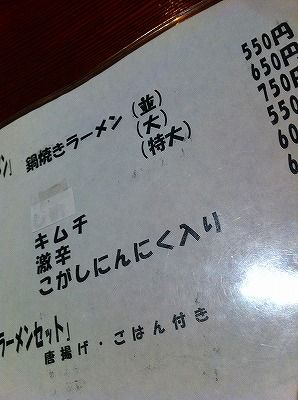 ン」 鍋焼きラーメン (並) 550円
(大) 650円
(特大) 750円
キムチ 550
激辛 60
こがしにんにく入り 6
ラーメンセット」
唐揚げ・ごはん付き